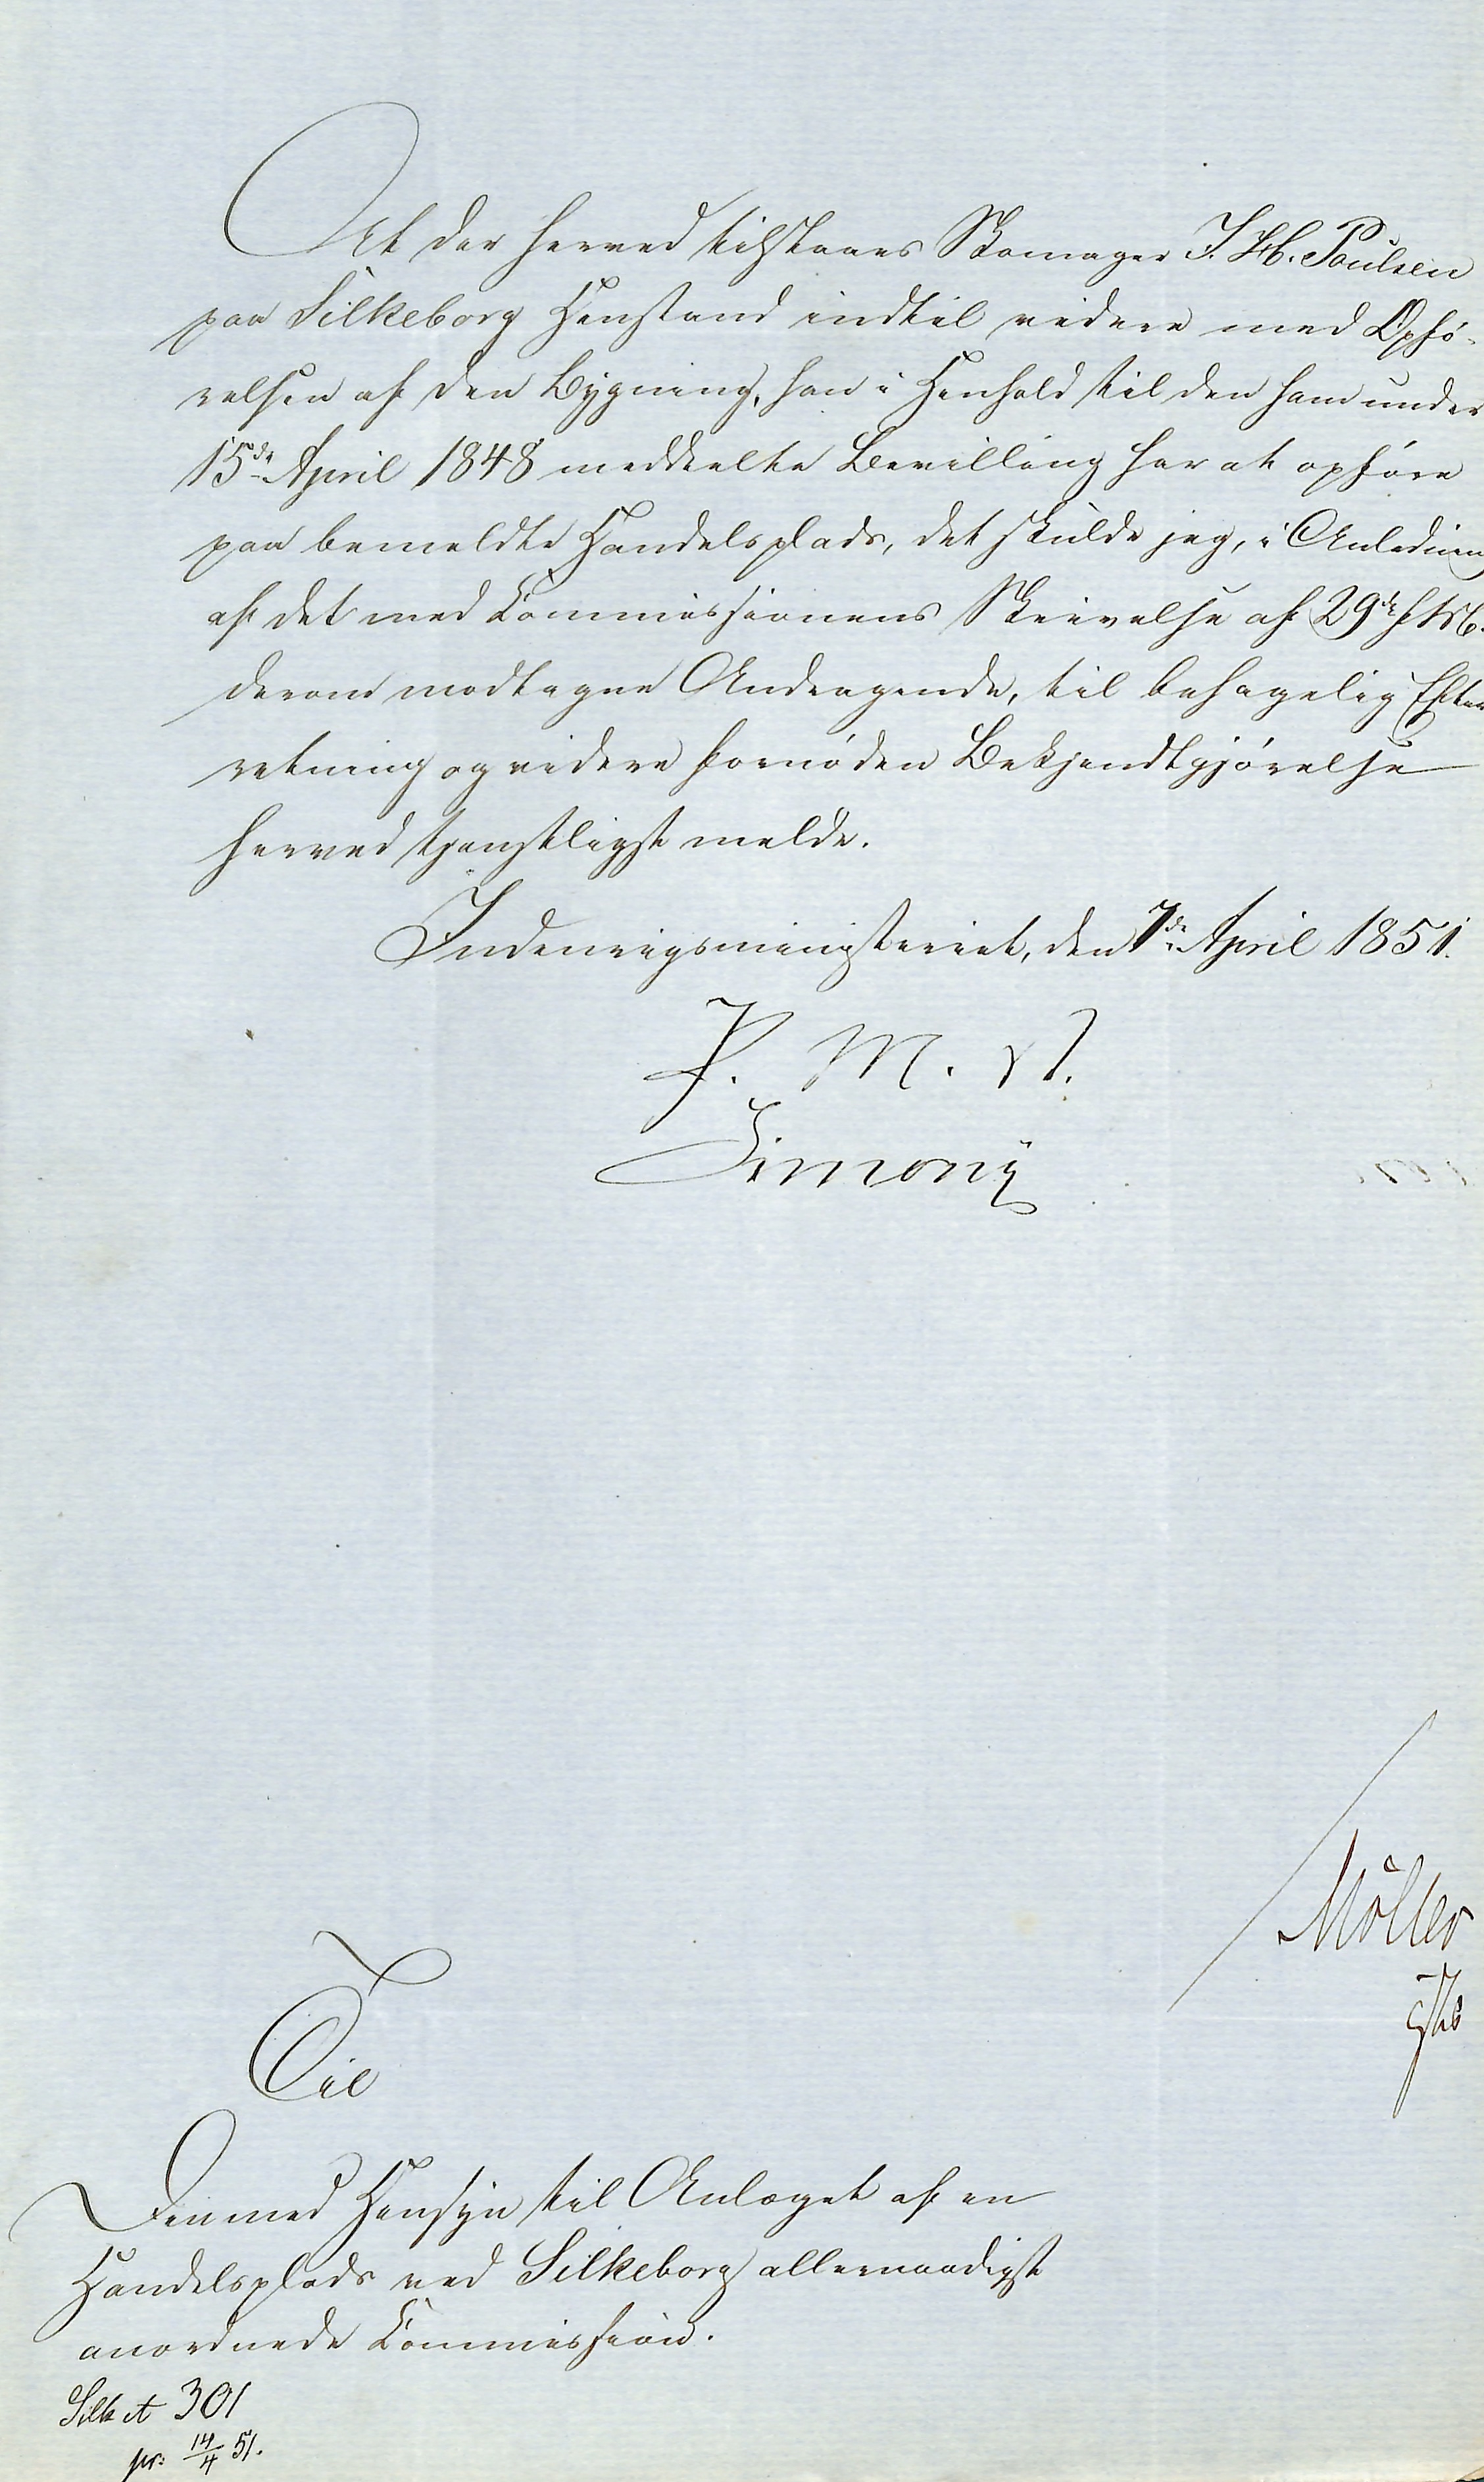 At der herved tilstaaes Skomager J. H. Poulsen
paa Silkeborg Henstand indtil videre med Opfö-
relsen af den Bygning, han i Henhold til den ham under
15de April 1848 meddeelte Bevilling har at opføre
paa bemeldte Handelsplads, det skulde jeg, i Anledning
af det med Commissionens Skrivelse af 29de f. M.
derom modtagne Andragende, til behagelig Efter
retning og videre fornöden Bekjendtgjörelse
herved tjenstligst melde.
Indenrigsministeriet, den 7de April 1851.
P. M. V.
Simony
Möller
Til
Den med Hensyn til Anlæget af en
Handelsplads ved Silkeborg allernaadigst
anordnede Commission.
Silk A 301
pr: 14/4 51.